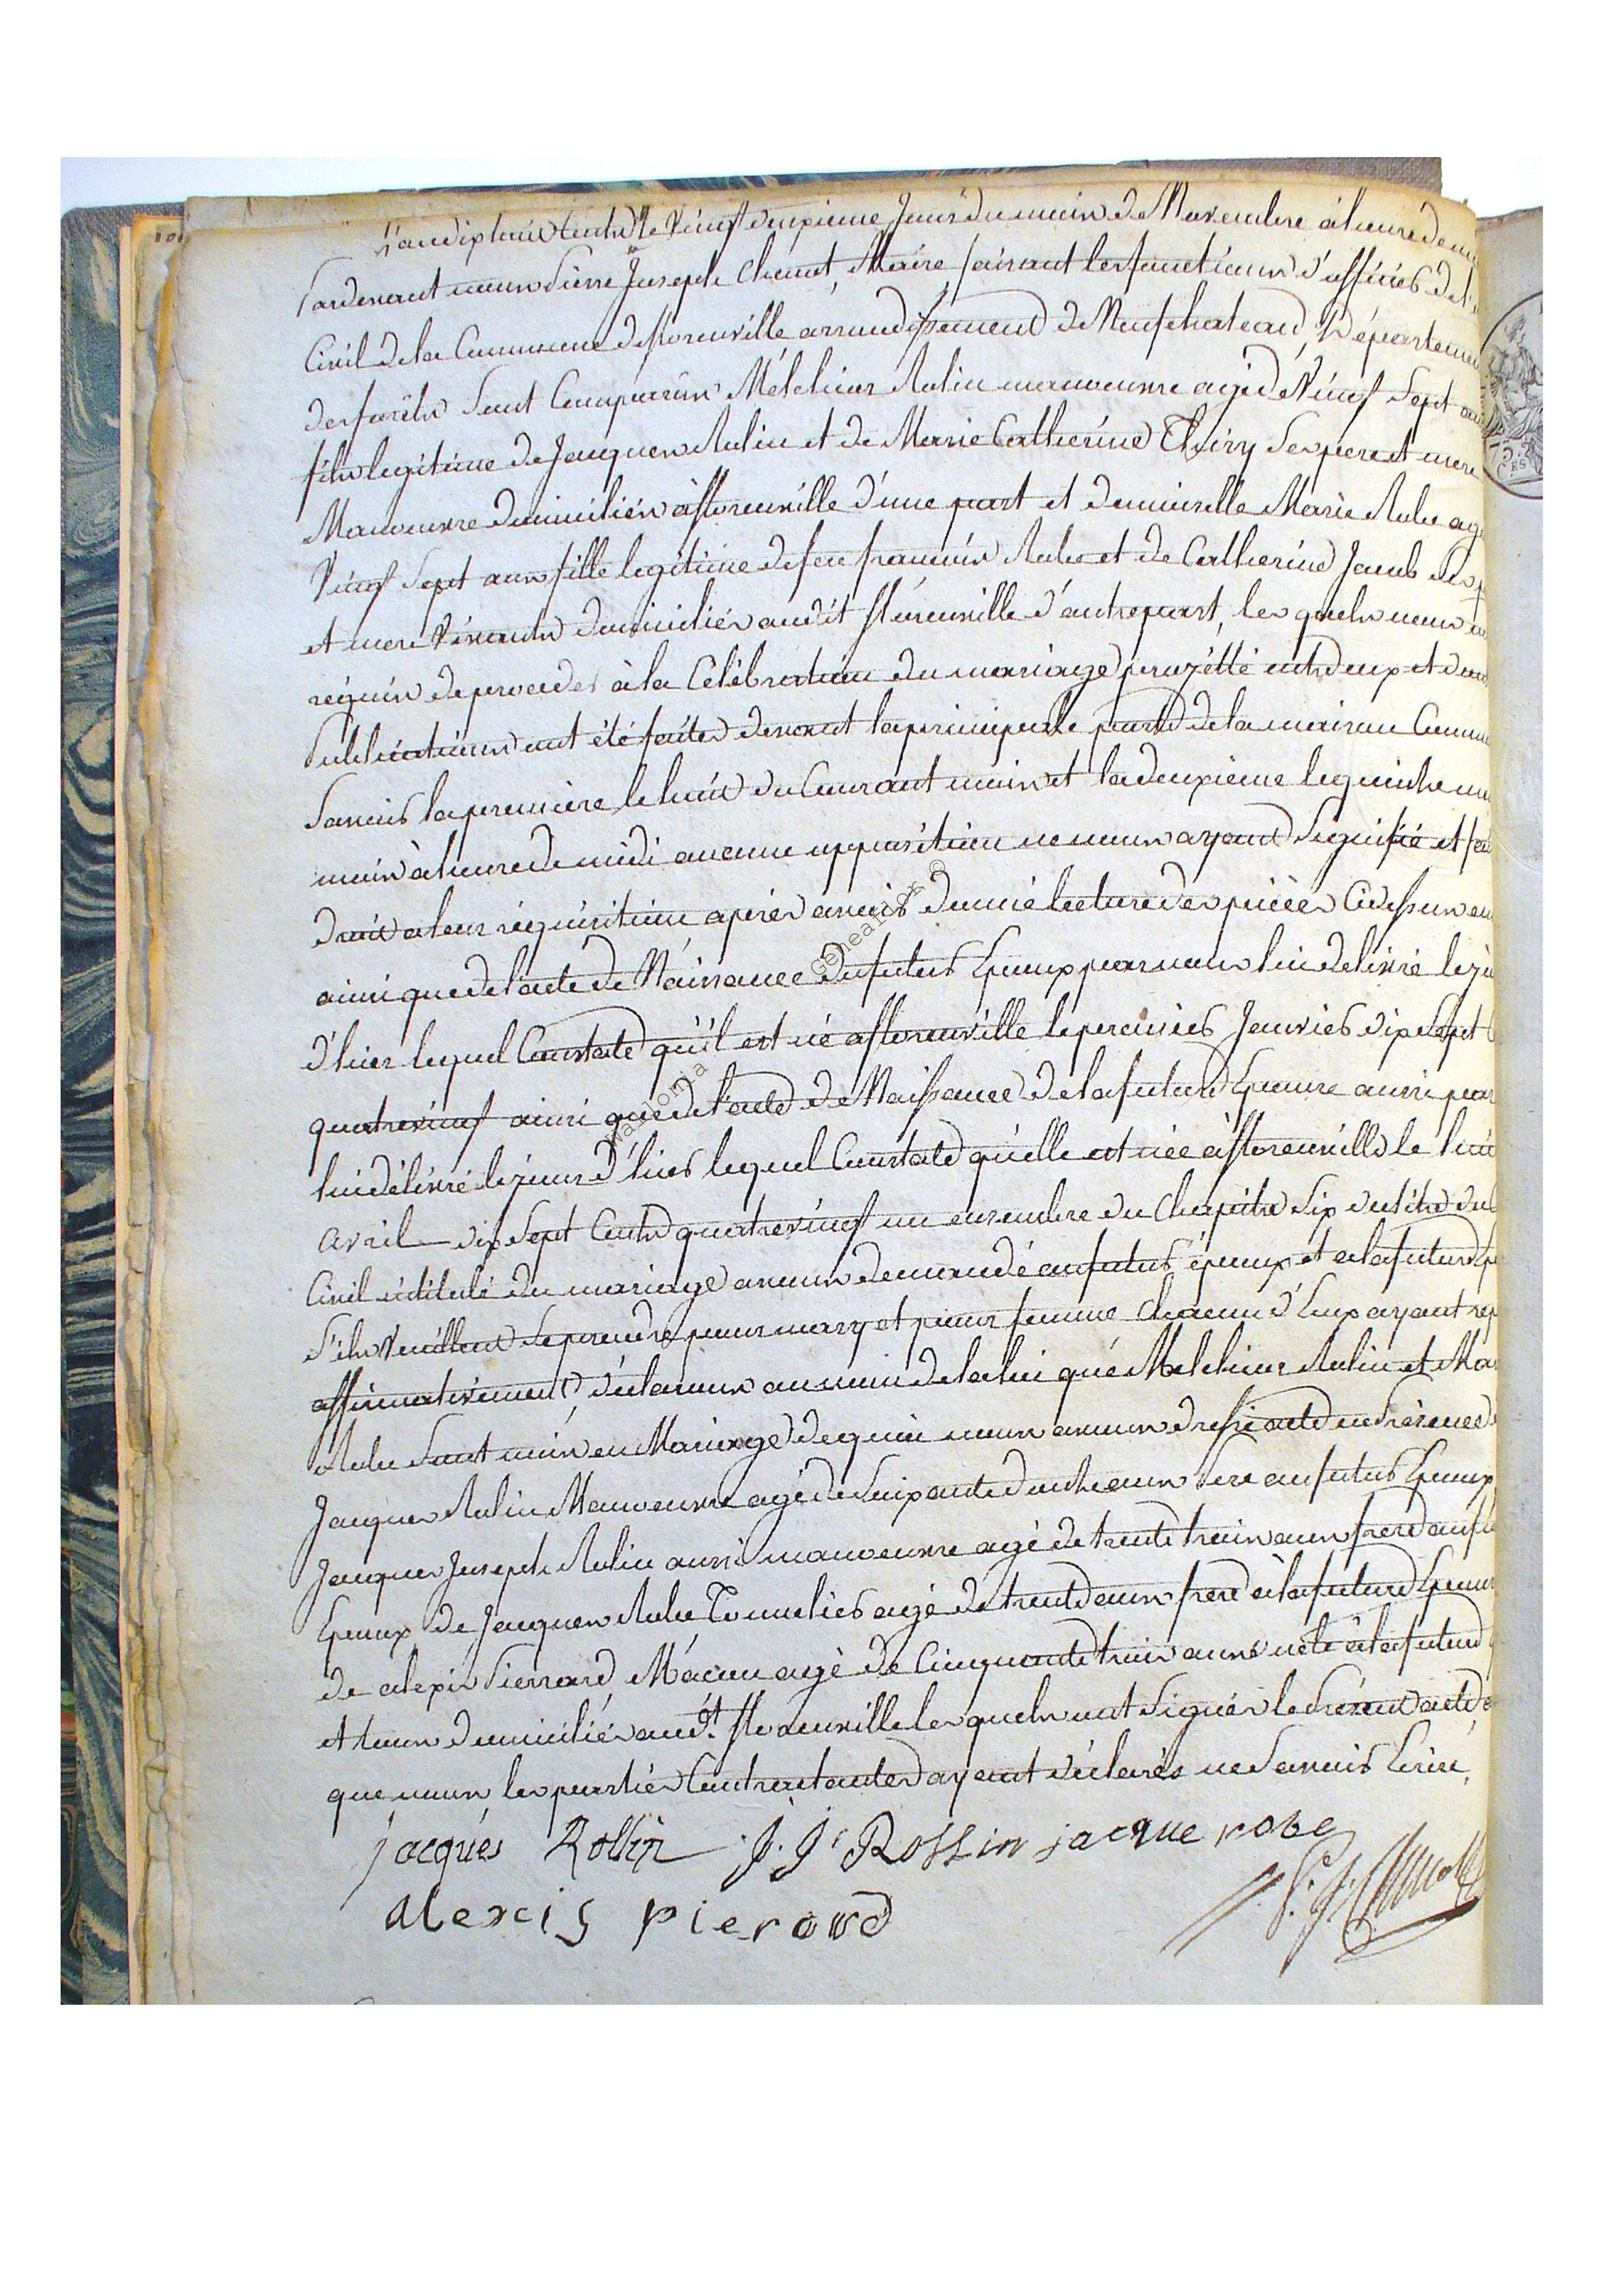 L'an dix huit cents le Vingt deuxieme Jour du mois de Novembre à l'heure de
Pardevant nous Pierre Joseph Clement, Maire faisant les fonctions d'officier de l'
Civil de la Commune de florenville arrondissement de Neufchateau, Département
des forêts Sont Comparus Melchior Rolin manoeuvre agé de Vingt Sept ans
fils legitime de Jacques Rolin et de Marie Catherine Thiry Ses pere et mere
Manoeuvre domiciliés à florenville d'une part et demoiselle Marie Robe ag
Vingt Sept ans fille legitime de feu francois Robe et de Catherine Jacob Ses p
et mere Vivants domiciliés audit florenville d'autre part, les quels nous
requis de proceder à la Célébration du mariage projétté entr'eux et dont
Publications ont été faites devant la principale porte de la maison Commune
Savoir la premiere le huit du Courant mois et la deuxieme le quinze
mois à l'heure de midi aucune opposition ne nous ayant Signifié et f
droit a leur réquisition après avoir donné lecture des pièces Cidessus
ainsi que de l'acte de Naissance du futur Epoux par nous lui delivré le j
d'hier lequel Constate qu'il est né a florenville le premier Janvier dix Sept
quatrevingt ainsi que de l'acte de Naissance de la future Epouse aussi par
lui délivré le jour d'hier lequel Constate qu'elle est née à florenville le huit
Avril dix Sept Cents quatrevingt un ensembre du Chapitre Six du titre du
Civil intitulé du mariage avons demandé au futur époux et a la future
S'ils Veuillent Se prendre pour mary et pour femme Chacun d'Eux ayant rep
affirmativement, déclarons au nom de la loi que Melchior Rolin et Ma
Robe Sont unis en Mariage de quoi nous avons dressé acte en Présence
Jacques Rolin Manoeuvre agé de Soixante douze ans Pere au futur Epoux
Jacques Joseph Rolin aussi manoeuvre agé de trente trois ans frere au fu
Epoux de Jacques Robe Tonnelier agé de trente ans frere à la future Epouse
de alexis Pierrard Macon agé de Cinquante trois ans à la future
et tous domiciliés audt. florenville les quels ont Signés le Présent acte
que nous, les parties Contractantes ayant déclarés ne Savoir Ecrire.
jacques Rollin J. J. Rossin jacque robe
alexis pierard